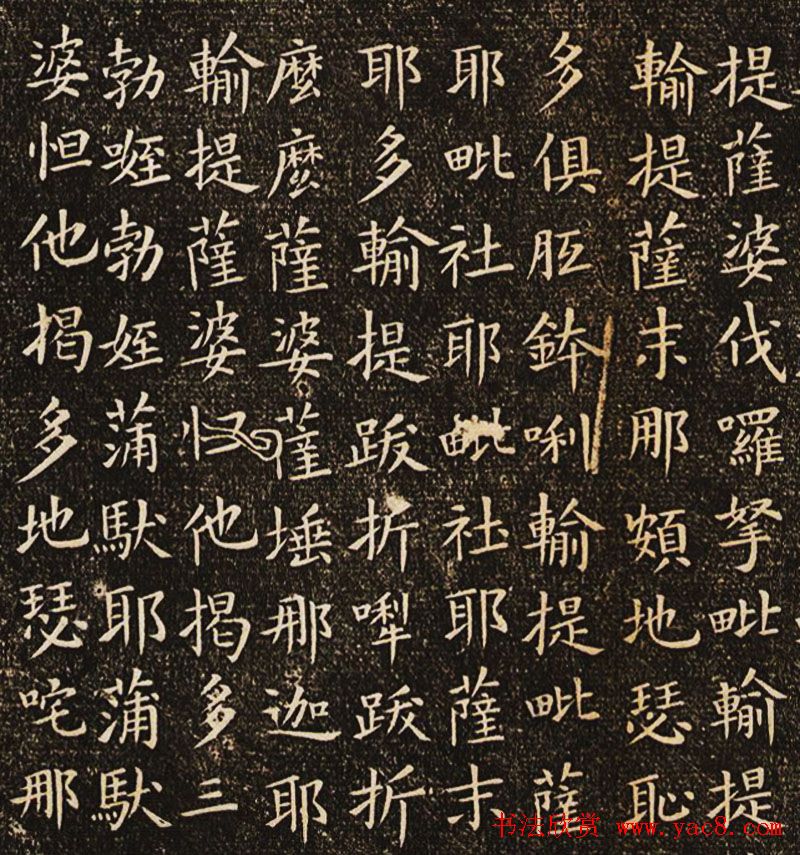 提薩婆伐囉拏毗輸提
輸提薩末那頞地瑟恥
多俱胝鉢唎輸提毗薩
耶毗社耶毗社耶薩末
耶多輸提跋折犁跋折
麼麼薩婆薩埵那迦耶
輸提薩婆怛他揭多三
勃㘑勃姪蒲馱耶蒲馱
婆怛他揭多地瑟咤那
书法欣赏 www.yac8.com